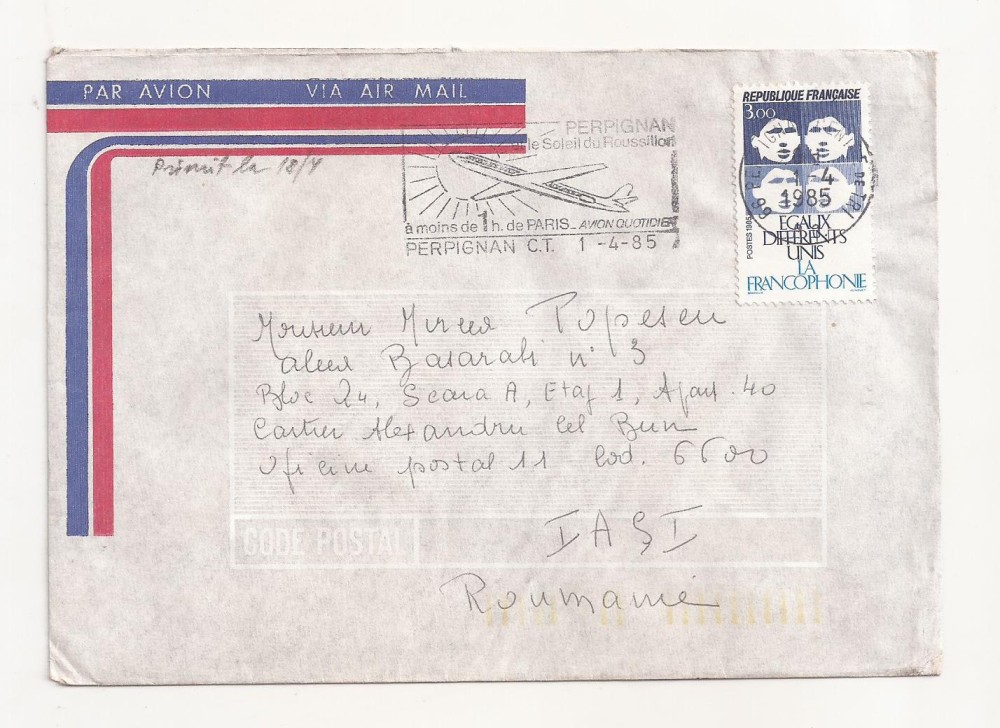 PAR AVION VIA AIR MAIL
Primit la 18/4
PERPIGNAN
et le Soleil du Roussillon
à moins de 1 h. de PARIS_AVION QUOTIDIEN
PERPIGNAN C.T. 1 -4-85
REPUBLIQUE FRANÇAISE
3,00
1-4
1985
POSTES 1985
EGAUX
DIFFERENTS
UNIS
LA
FRANCOPHONIE
Monsieur Mircea Popescu
aleea Basarabi n° 3
Bloc 24, Scara A, Etaj 1, Apart. 40
Cartier Alexandru cel Bun
Oficiu postal 11 Cod. 6600
CODE POSTAL
IAŞI
Roumanie